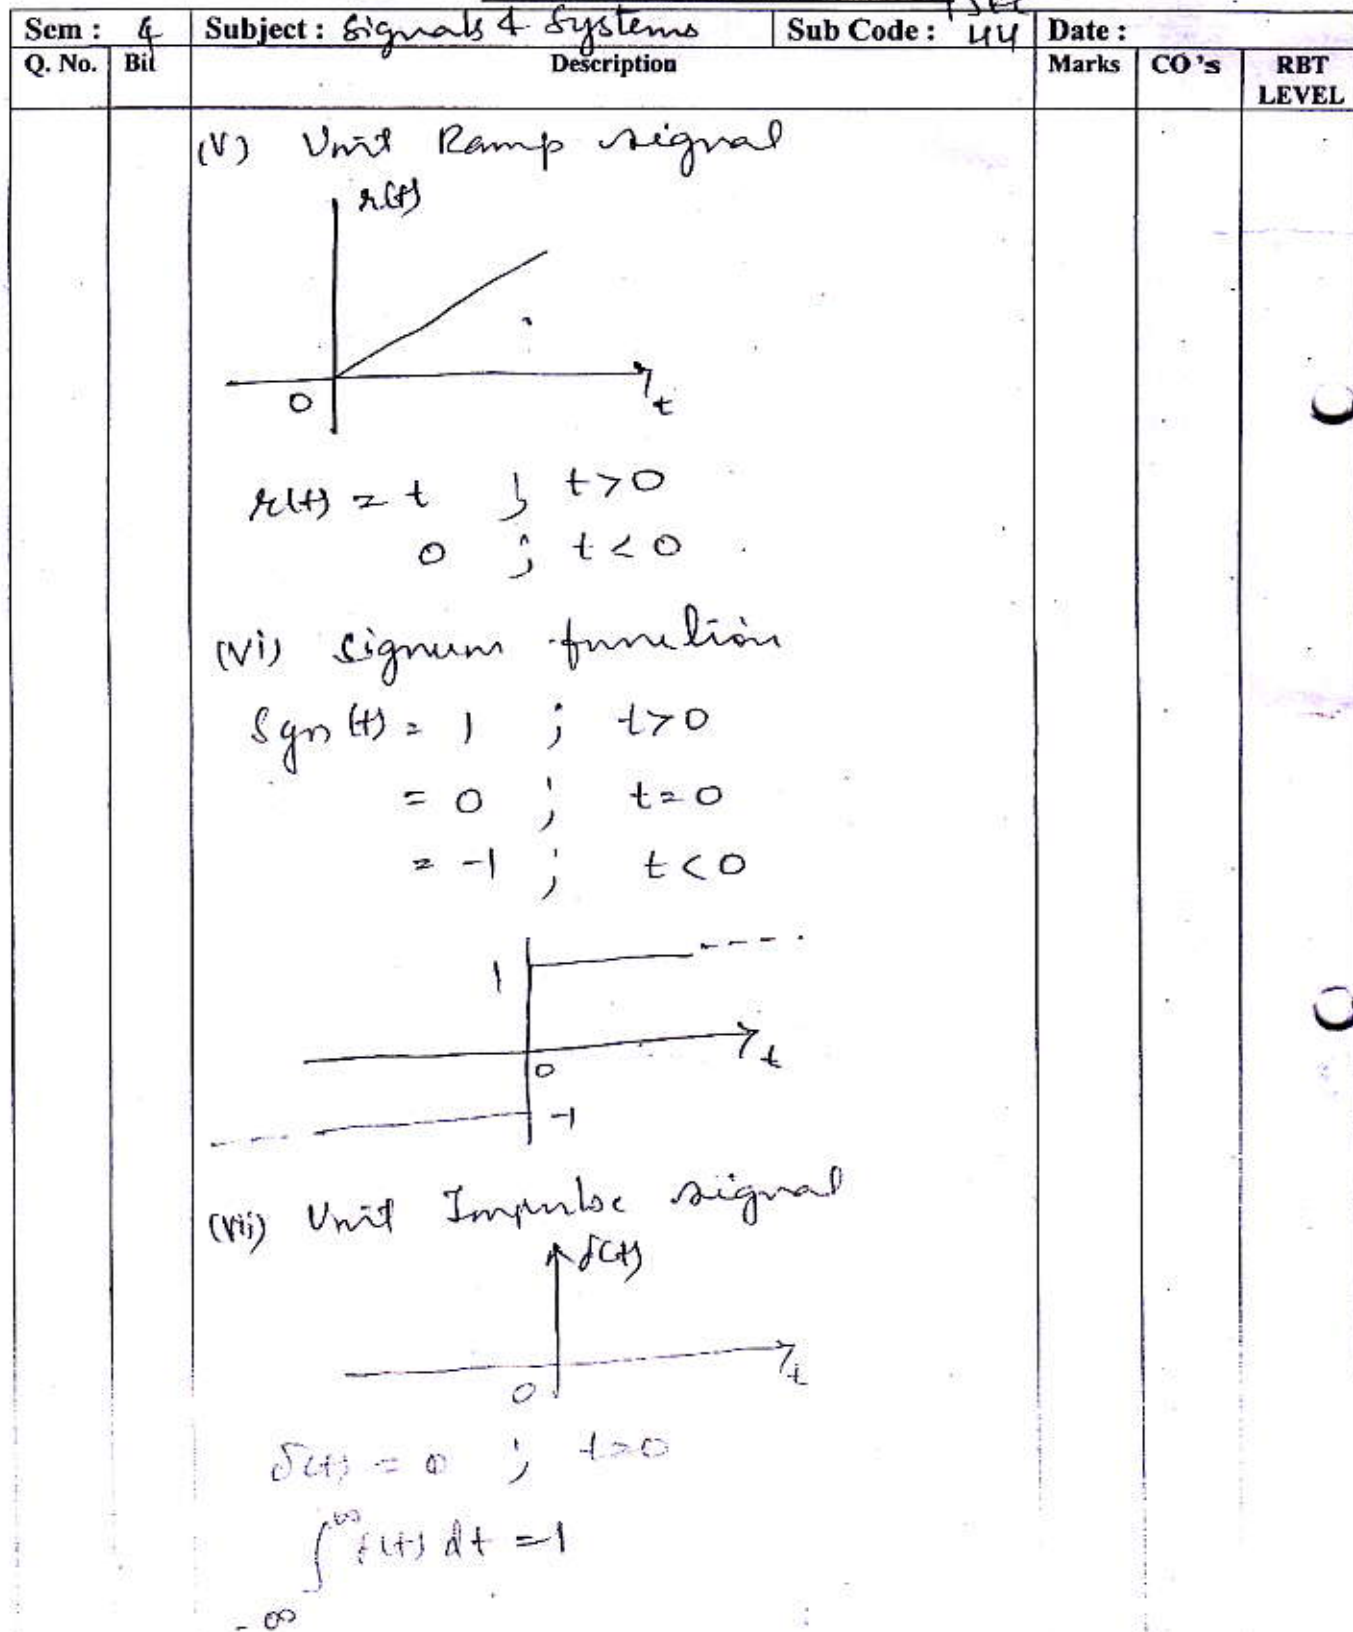 Sem : 4 Subject : Signals & Systems Sub Code : 44 Date :
Q. No. Bit Description Marks CO's RBT LEVEL
(V) Unit Ramp signal
r(t)
0 t
r(t) = t ; t>0
0 ; t<0
(Vi) Signum function
Sgn(t) = 1 ; t>0
= 0 ; t=0
= -1 ; t<0
1
0 t
-1
(Vii) Unit Impulse signal
δ(t)
0 t
δ(t) = 0 ; t=0
∫ ∞ -∞ δ(t) dt = 1